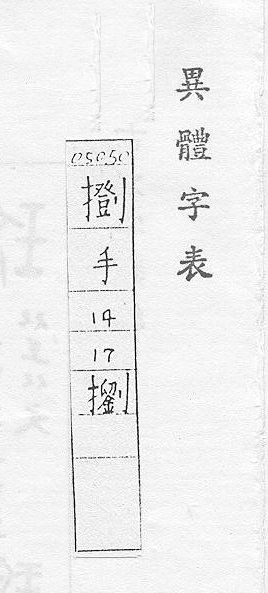 異體字表
05050
手
14
17